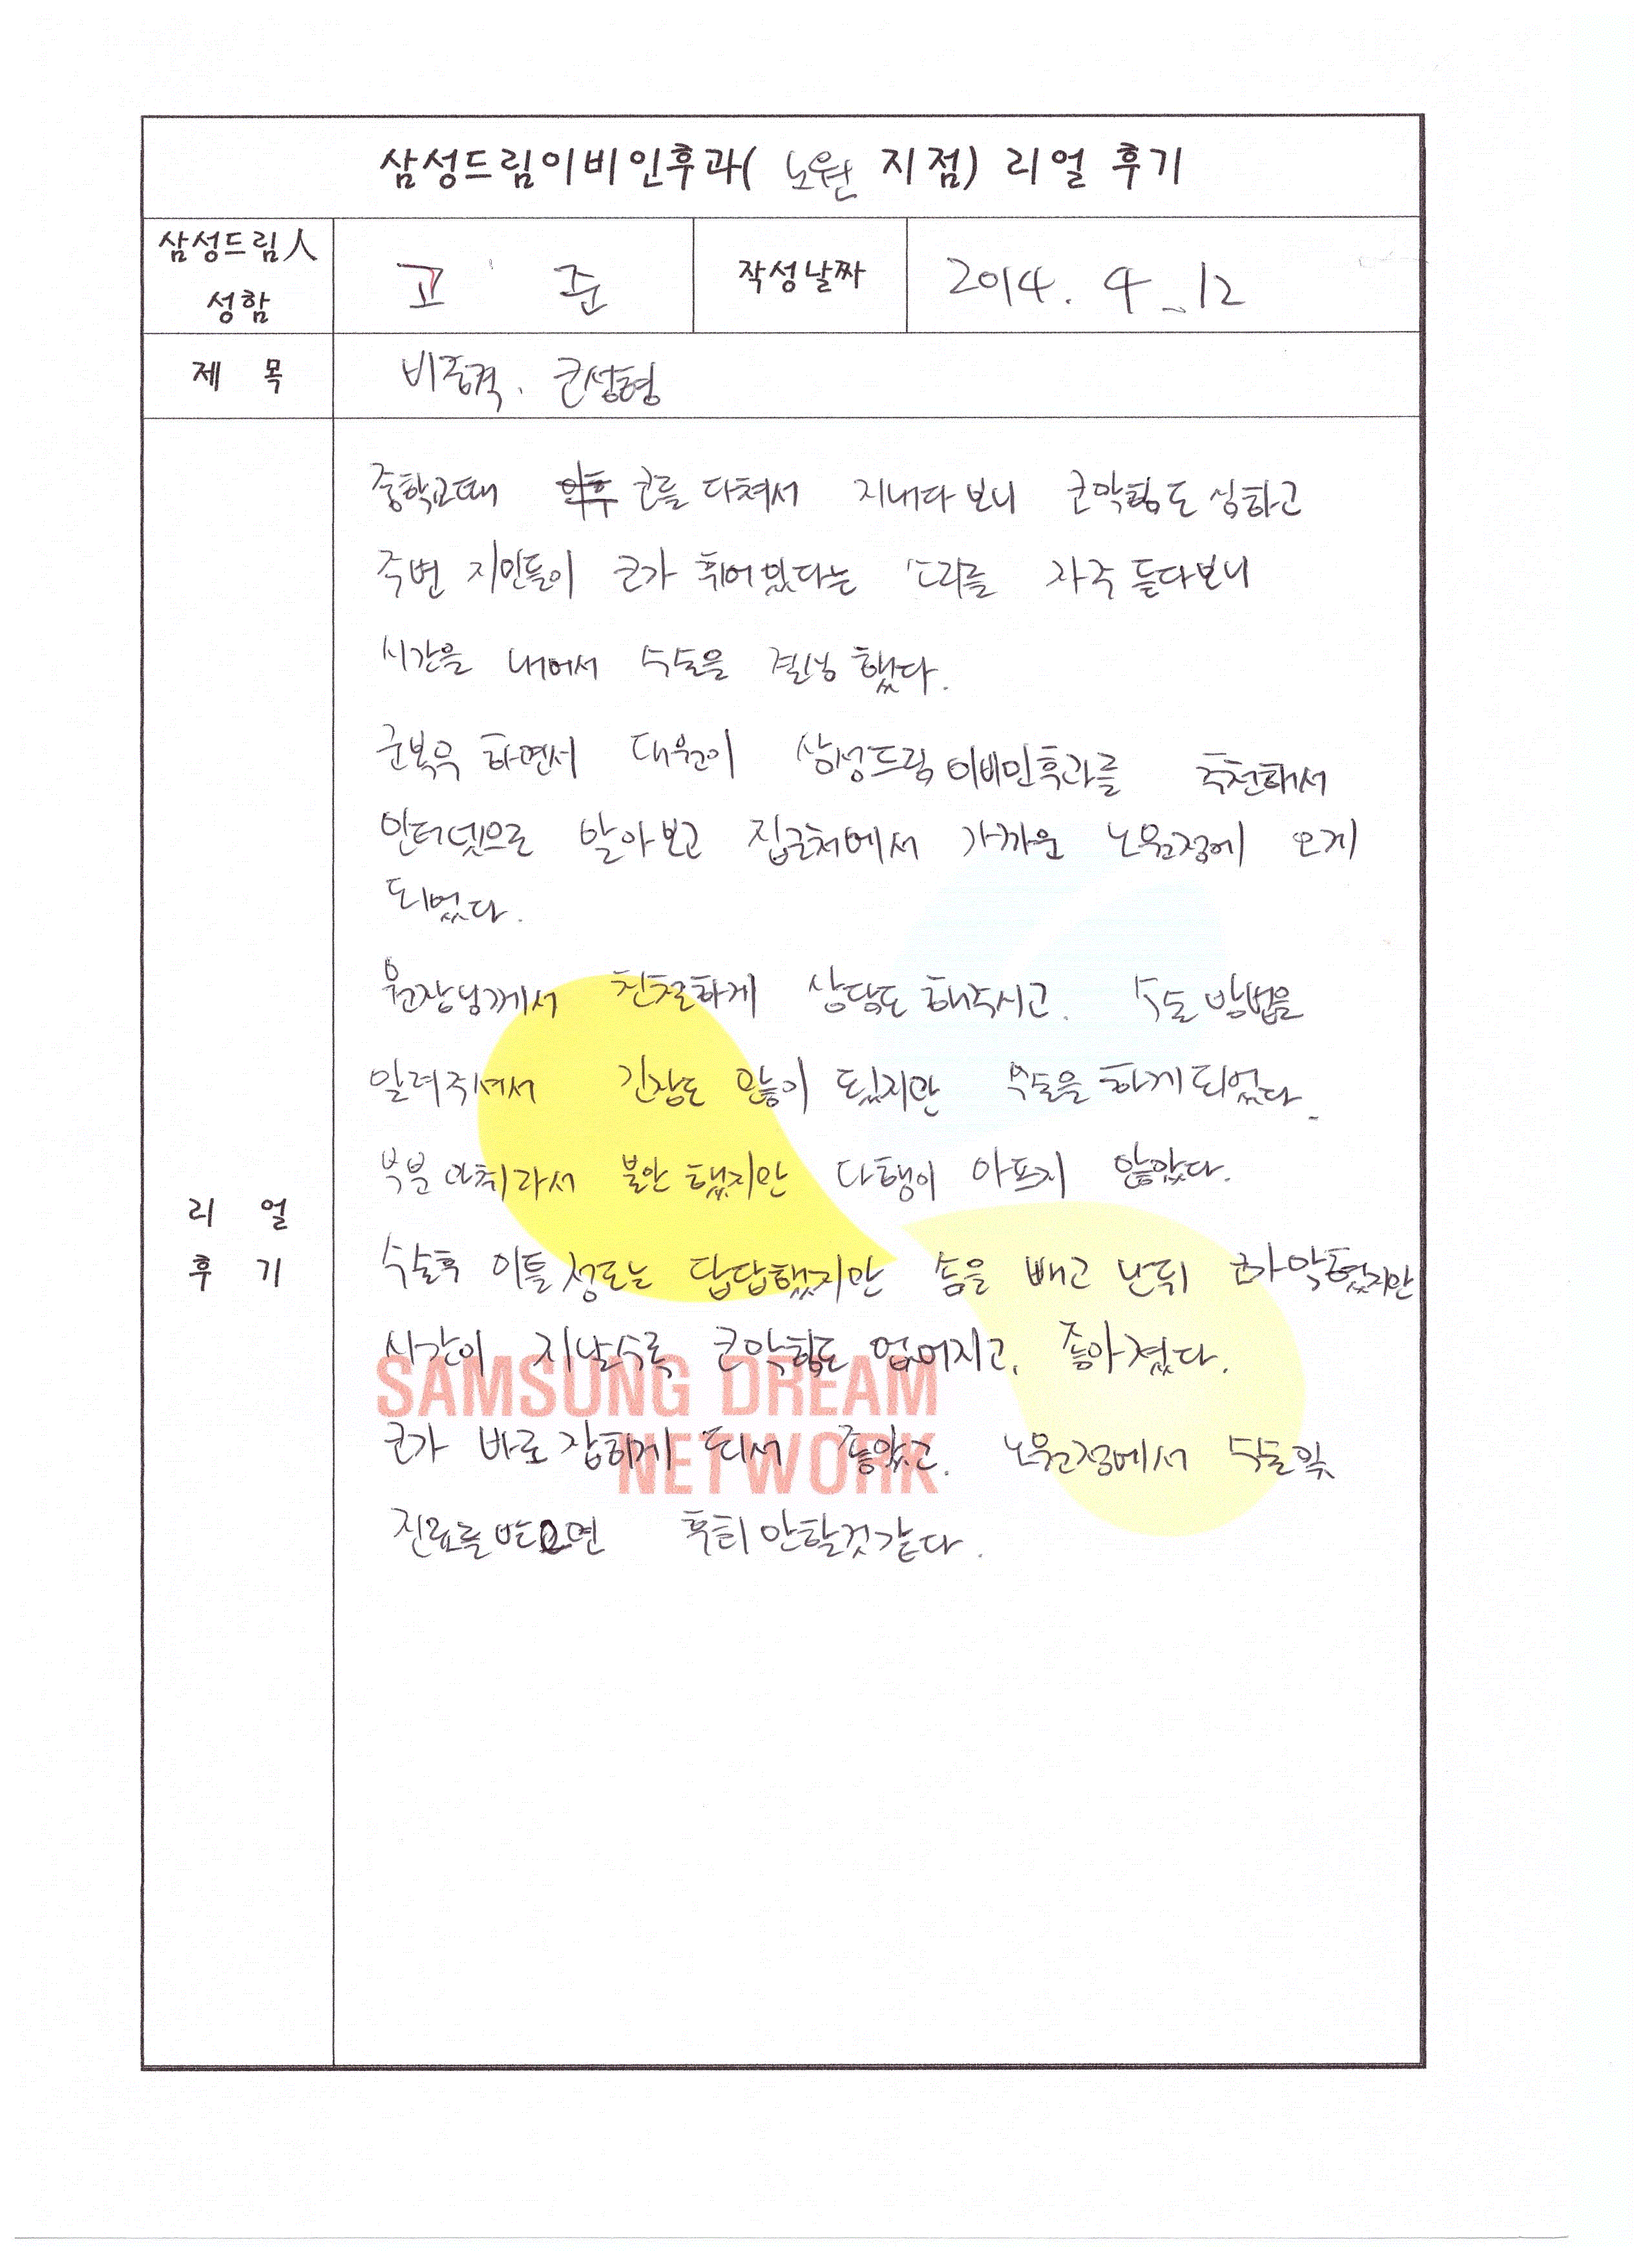 삼성드림이비인후과( 노원 지점) 리얼 후기
삼성드림人
성함
고 준
작성날짜
2014. 4. 12
제 목
비중격. 코성형
중학교때 코를 다쳐서 지내다 보니 코막힘도 심하고
주변 지인들이 코가 휘어있다는 소리를 자주 듣다보니
시간을 내어서 수술을 결심 했다.
군복무 하면서 대원이 삼성드림 이비인후과를 추천해서
인터넷으로 알아보고 집근처에서 가까운 노원점에 오게
되었다.
원장님께서 친절하게 상담도 해주시고. 수술 방법을
알려주셔서 긴장도 많이 됬지만 수술을 하게 되었다.
부분 마취라서 불안 했지만 다행이 아프지 않았다.
리 얼
후 기
수술후 이틀 정도는 답답했지만 솜을 빼고 난뒤 코가 막혔지만
시간이 지날수록 코막힘도 없어지고, 좋아졌다.
코가 바로 잡히게 되서 좋았고. 노원점에서 수술및
진료를 받으면 후회 안할것 같다.
SAMSUNG DREAM
NETWORK